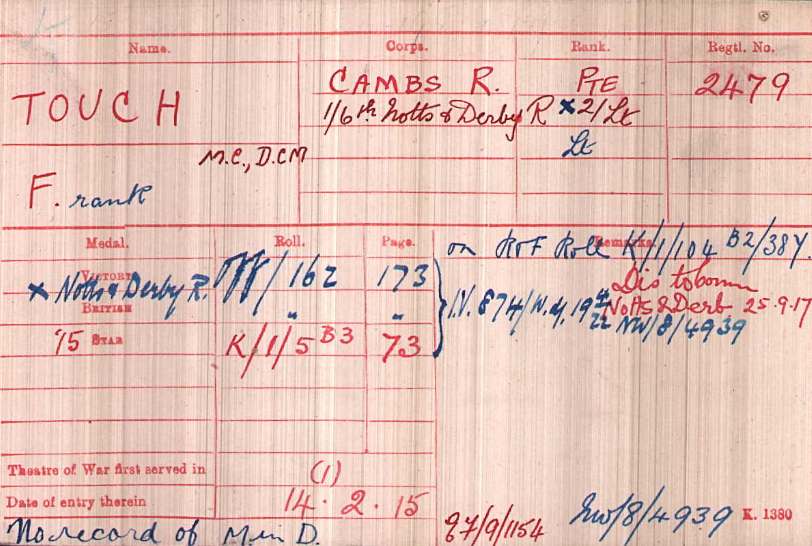 Name. Corps. Rank. Regtl. No.
TOUCH CAMBS R. PTE 2479
1/6th Notts & Derby R x 2/Lt
M.C., D.CM Lt
F. rank
Medal. Roll. Page. Remarks.
on R of F Roll K/1/104 B2/38Y.
VICTORY
x Notts & Derby R. /162 173
Dis to comm
BRITISH " " I.V. 874/ Notts & Derb 25-9-17
22 NW/8/4939
'15 STAR K/1/5 B3 73
Theatre of War first served in (1)
Date of entry therein 14.2.15
No record of M in D. 87/9/1154 NW/8/4939 K. 1380